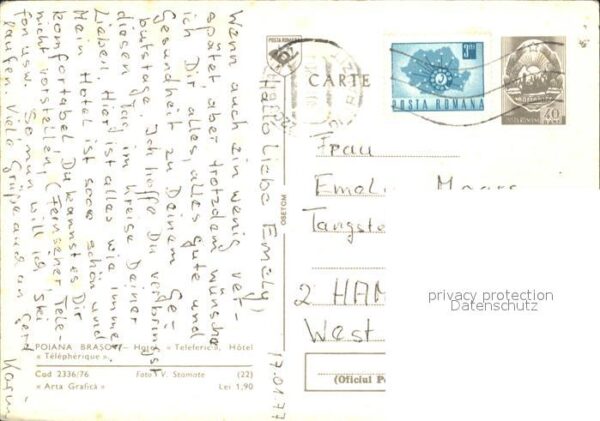 POSTA ROMANA
CARTE
3 LEI
POSTA ROMANA
40
BANI
Hallo Liebe Emely,
Wenn auch ein wenig ver-
spätet, aber trotzdem wünsche
ich Dir alles, alles gute und
Gesundheit zu Deinem Ge-
burtstage. Ich hoffe Du verbringst
diesen Tag im Kreise Deiner
Lieben. Hier ist alles wie immer.
Mein Hotel ist sooo schön und
komfortabel, Du kannst es Dir
nicht vorstellen, (Fernseher, Tele-
fon usw. So nun will ich Ski
laufen. Viele Grüße auch an Gerd
Karin
17.01.77
OSETOM
Frau
2 HAM
West
privacy protection
Datenschutz
POIANA BRAȘOV — Hotel « Teleferic », Hôtel
« Téléphérique ».
Cod 2336/76 Foto: V. Stamate (22)
« Arta Grafică » Lei 1,90
(Oficiul P